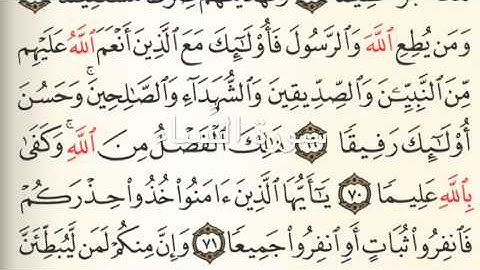 وَمَن يُطِعِ ٱللَّهَ وَٱلرَّسُولَ فَأُو۟لَـٰٓئِكَ مَعَ ٱلَّذِينَ أَنْعَمَ ٱللَّهُ عَلَيْهِم
مِّنَ ٱلنَّبِيِّـۧنَ وَٱلصِّدِّيقِينَ وَٱلشُّهَدَآءِ وَٱلصَّـٰلِحِينَ ۚ وَحَسُنَ
أُو۟لَـٰٓئِكَ رَفِيقًا ٦٩ ذَٰلِكَ ٱلْفَضْلُ مِنَ ٱللَّهِ ۚ وَكَفَىٰ
سورة النساء
بِٱللَّهِ عَلِيمًا ٧٠ يَـٰٓأَيُّهَا ٱلَّذِينَ ءَامَنُوا۟ خُذُوا۟ حِذْرَكُمْ
فَٱنفِرُوا۟ ثُبَاتٍ أَوِ ٱنفِرُوا۟ جَمِيعًا ٧١ وَإِنَّ مِنكُمْ لَمَن لَّيُبَطِّئَنَّ